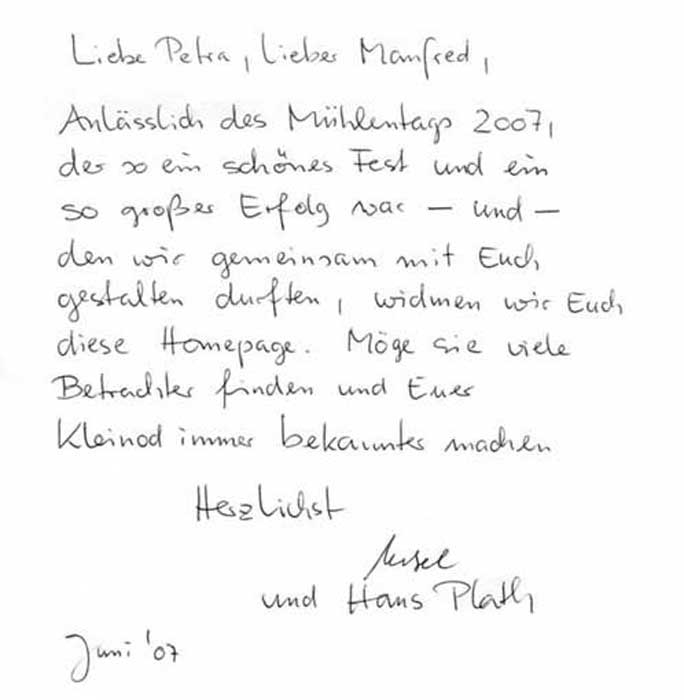 Liebe Petra, lieber Manfred,
Anlässlich des Mühlentags 2007,
der so ein schönes Fest und ein
so großer Erfolg war – und –
den wir gemeinsam mit Euch
gestalten durften, widmen wir Euch
diese Homepage. Möge sie viele
Betrachter finden und Euer
Kleinod immer bekannter machen
Herzlichst
und Hans Plath
Juni '07